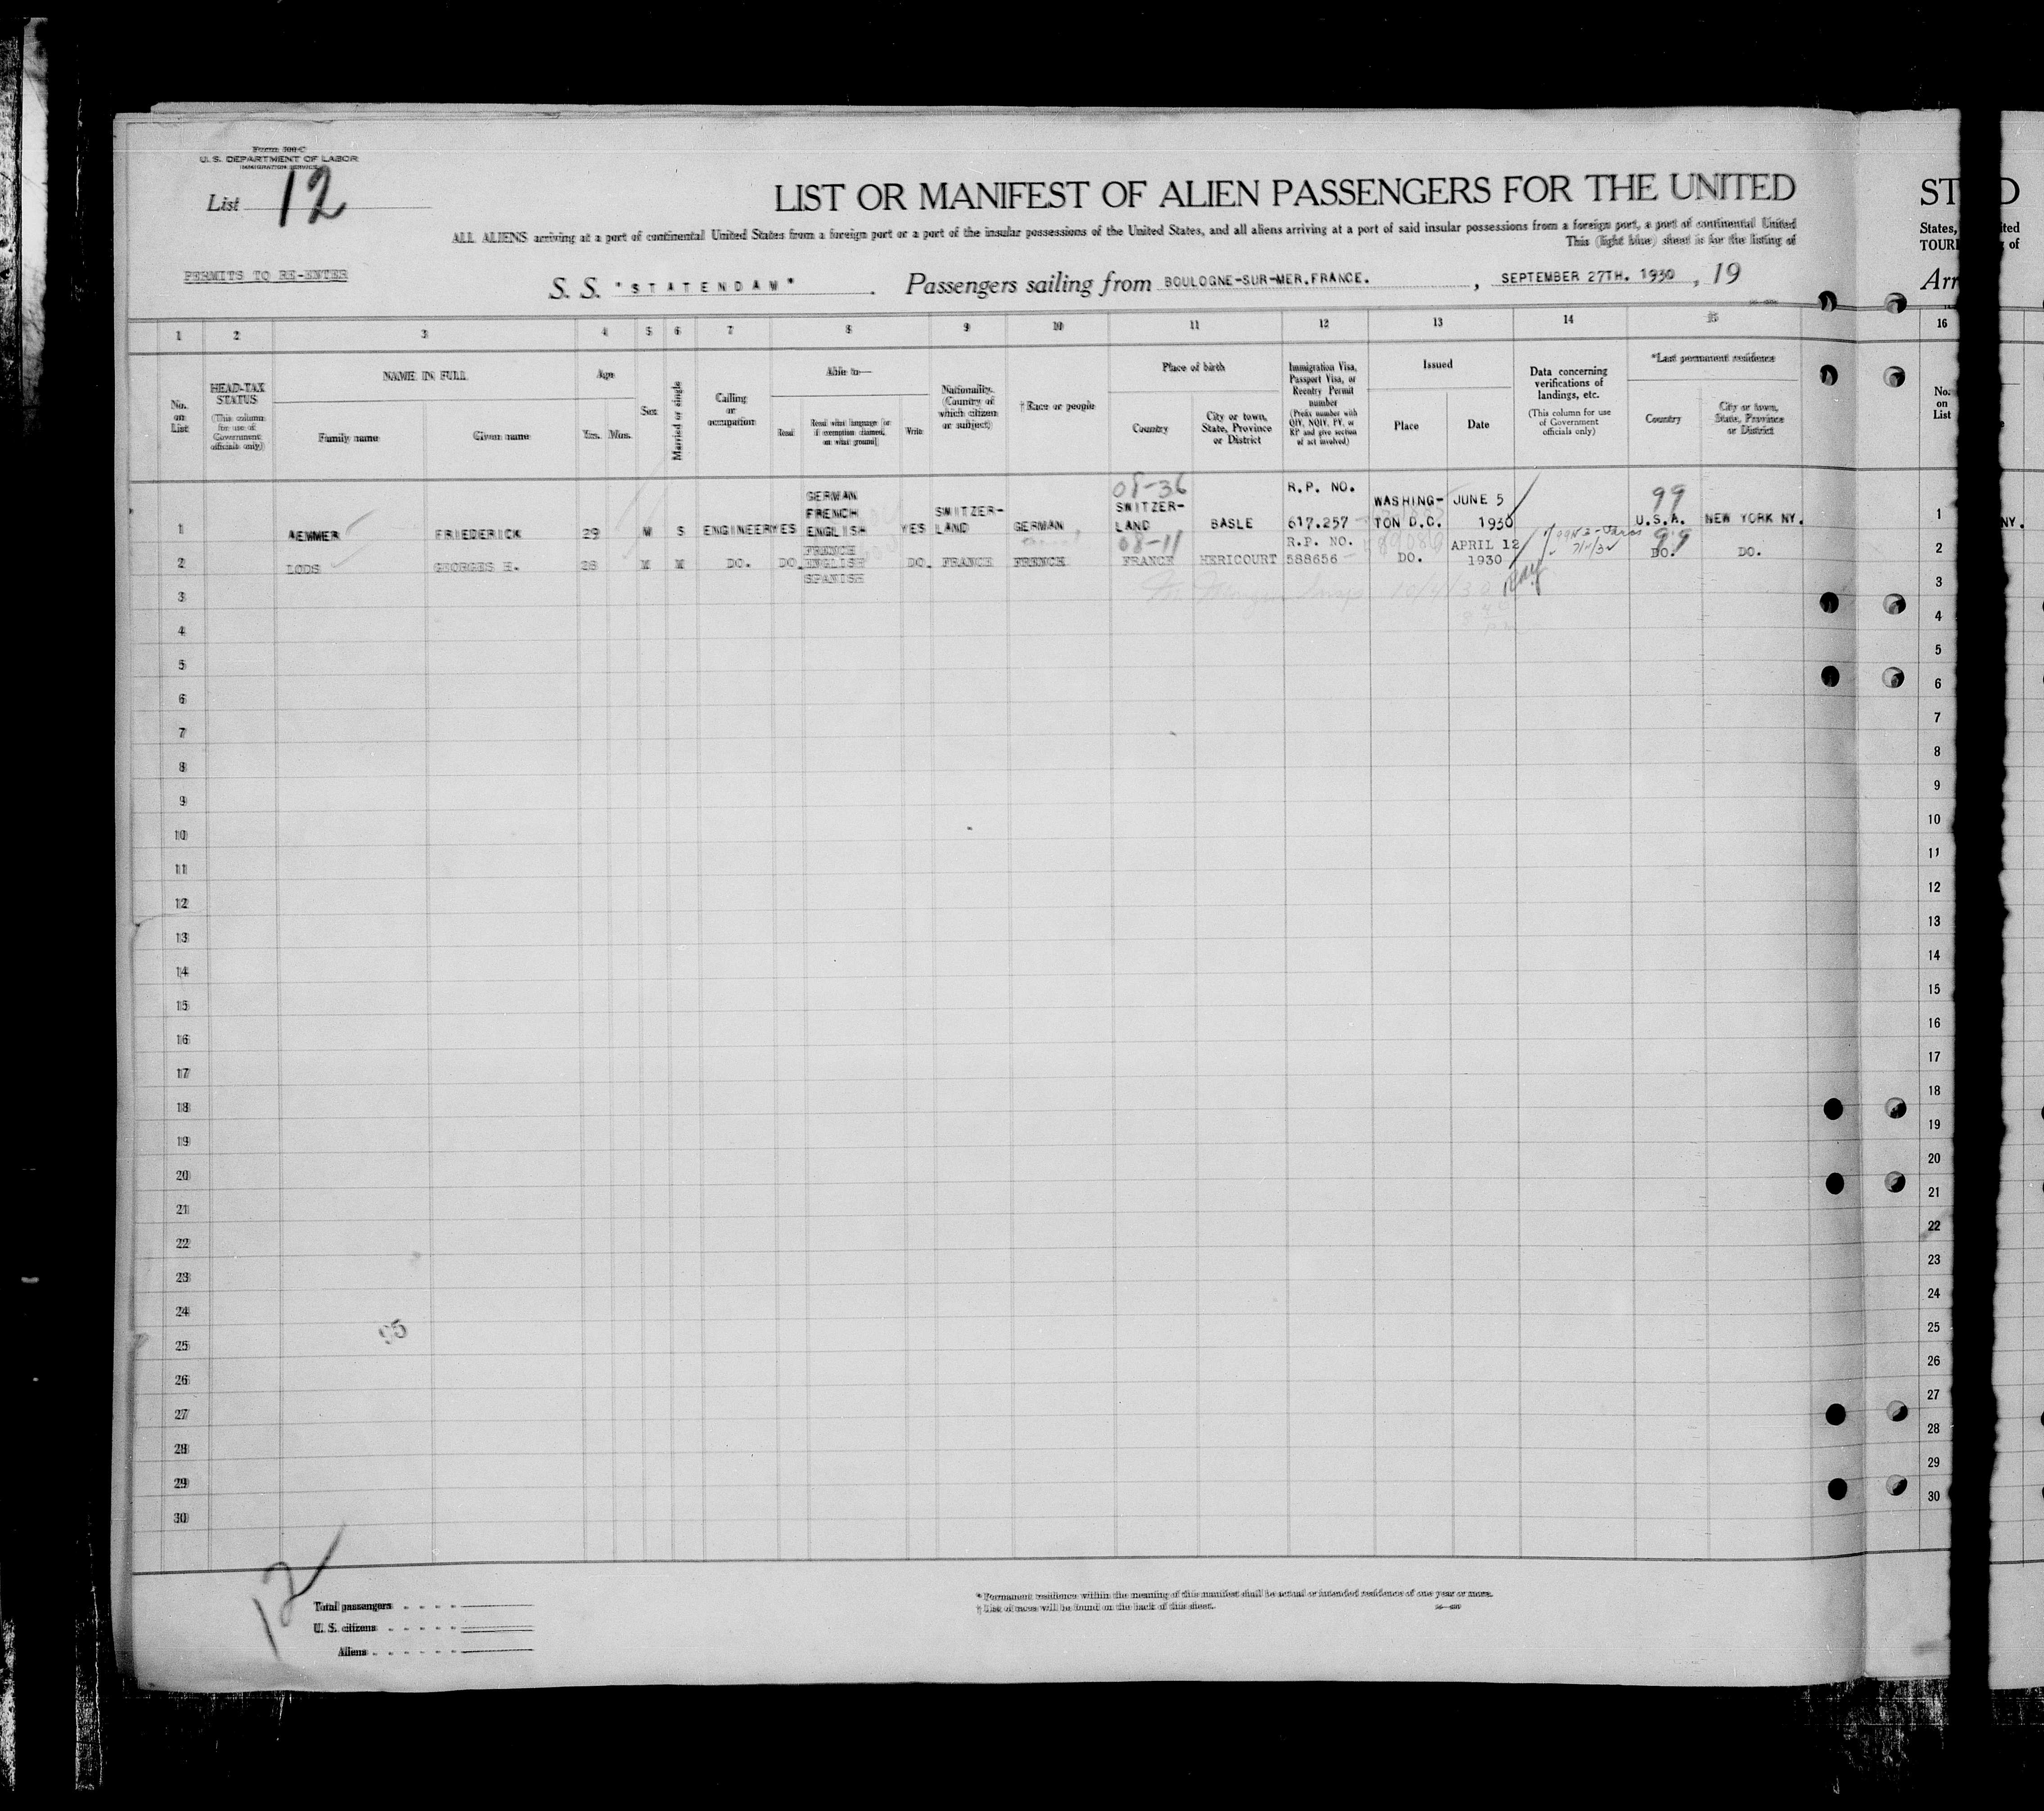 Form 500-C
U. S. DEPARTMENT OF LABOR
IMMIGRATION SERVICE
List 12
LIST OR MANIFEST OF ALIEN PASSENGERS FOR THE UNITED
ST D
ALL ALIENS arriving at a port of continental United States from a foreign port or a port of the insular possessions of the United States, and all aliens arriving at a port of said insular possessions from a foreign port, a port of continental United
States, ited
This (light blue) sheet is for the listing of
TOURI g of
PERMITS TO RE-ENTER
S. S. "STATENDAM" . Passengers sailing from BOULOGNE-SUR-MER.FRANCE. , SEPTEMBER 27TH. 1930 , 19
Arr
1 2 3 4 5 6 7 8 9 10 11 12 13 14 15 16
No. on List
HEAD-TAX STATUS
(This column for use of Government officials only)
NAME IN FULL
Family name Given name
Age
Yrs. Mos.
Sex
Married or single
Calling or occupation
Able to—
Read
Read what language [or if exemption claimed, on what ground]
Write
Nationality. (Country of which citizen or subject)
† Race or people
Place of birth
Country
City or town, State, Province or District
Immigration Visa, Passport Visa, or Reentry Permit number
(Prefix number with QIV, NQIV, PV, or RP and give section of act involved)
Issued
Place Date
Data concerning verifications of landings, etc.
(This column for use of Government officials only)
*Last permanent residence
Country
City or town, State, Province or District
No. on List
1 AEMMER FRIEDERICK 29 M S ENGINEER YES GERMAN FRENCH ENGLISH YES SWITZER-LAND GERMAN 08-36 SWITZER-LAND BASLE R.P. NO. 617.257 WASHING-TON D.C. JUNE 5 1930 99 U.S.A. NEW YORK NY. 1 NY.
2 LODS GEORGES H. 28 M M DO. DO. FRENCH ENGLISH SPANISH DO. FRANCE FRENCH 08-11 FRANCE HERICOURT R.P. NO. 588656 DO. APRIL 12 1930 99 DO. DO. 2
10/4/30
3 3
4 4
5 5
6 6
7 7
8 8
9 9
10 10
11 11
12 12
13 13
14 14
15 15
16 16
17 17
18 18
19 19
20 20
21 21
22 22
23 23
24 24
25 25
26 26
27 27
28 28
29 29
30 30
12
Total passengers
U. S. citizens
Aliens
* Permanent residence within the meaning of this manifest shall be actual or intended residence of one year or more.
† List of races will be found on the back of this sheet.